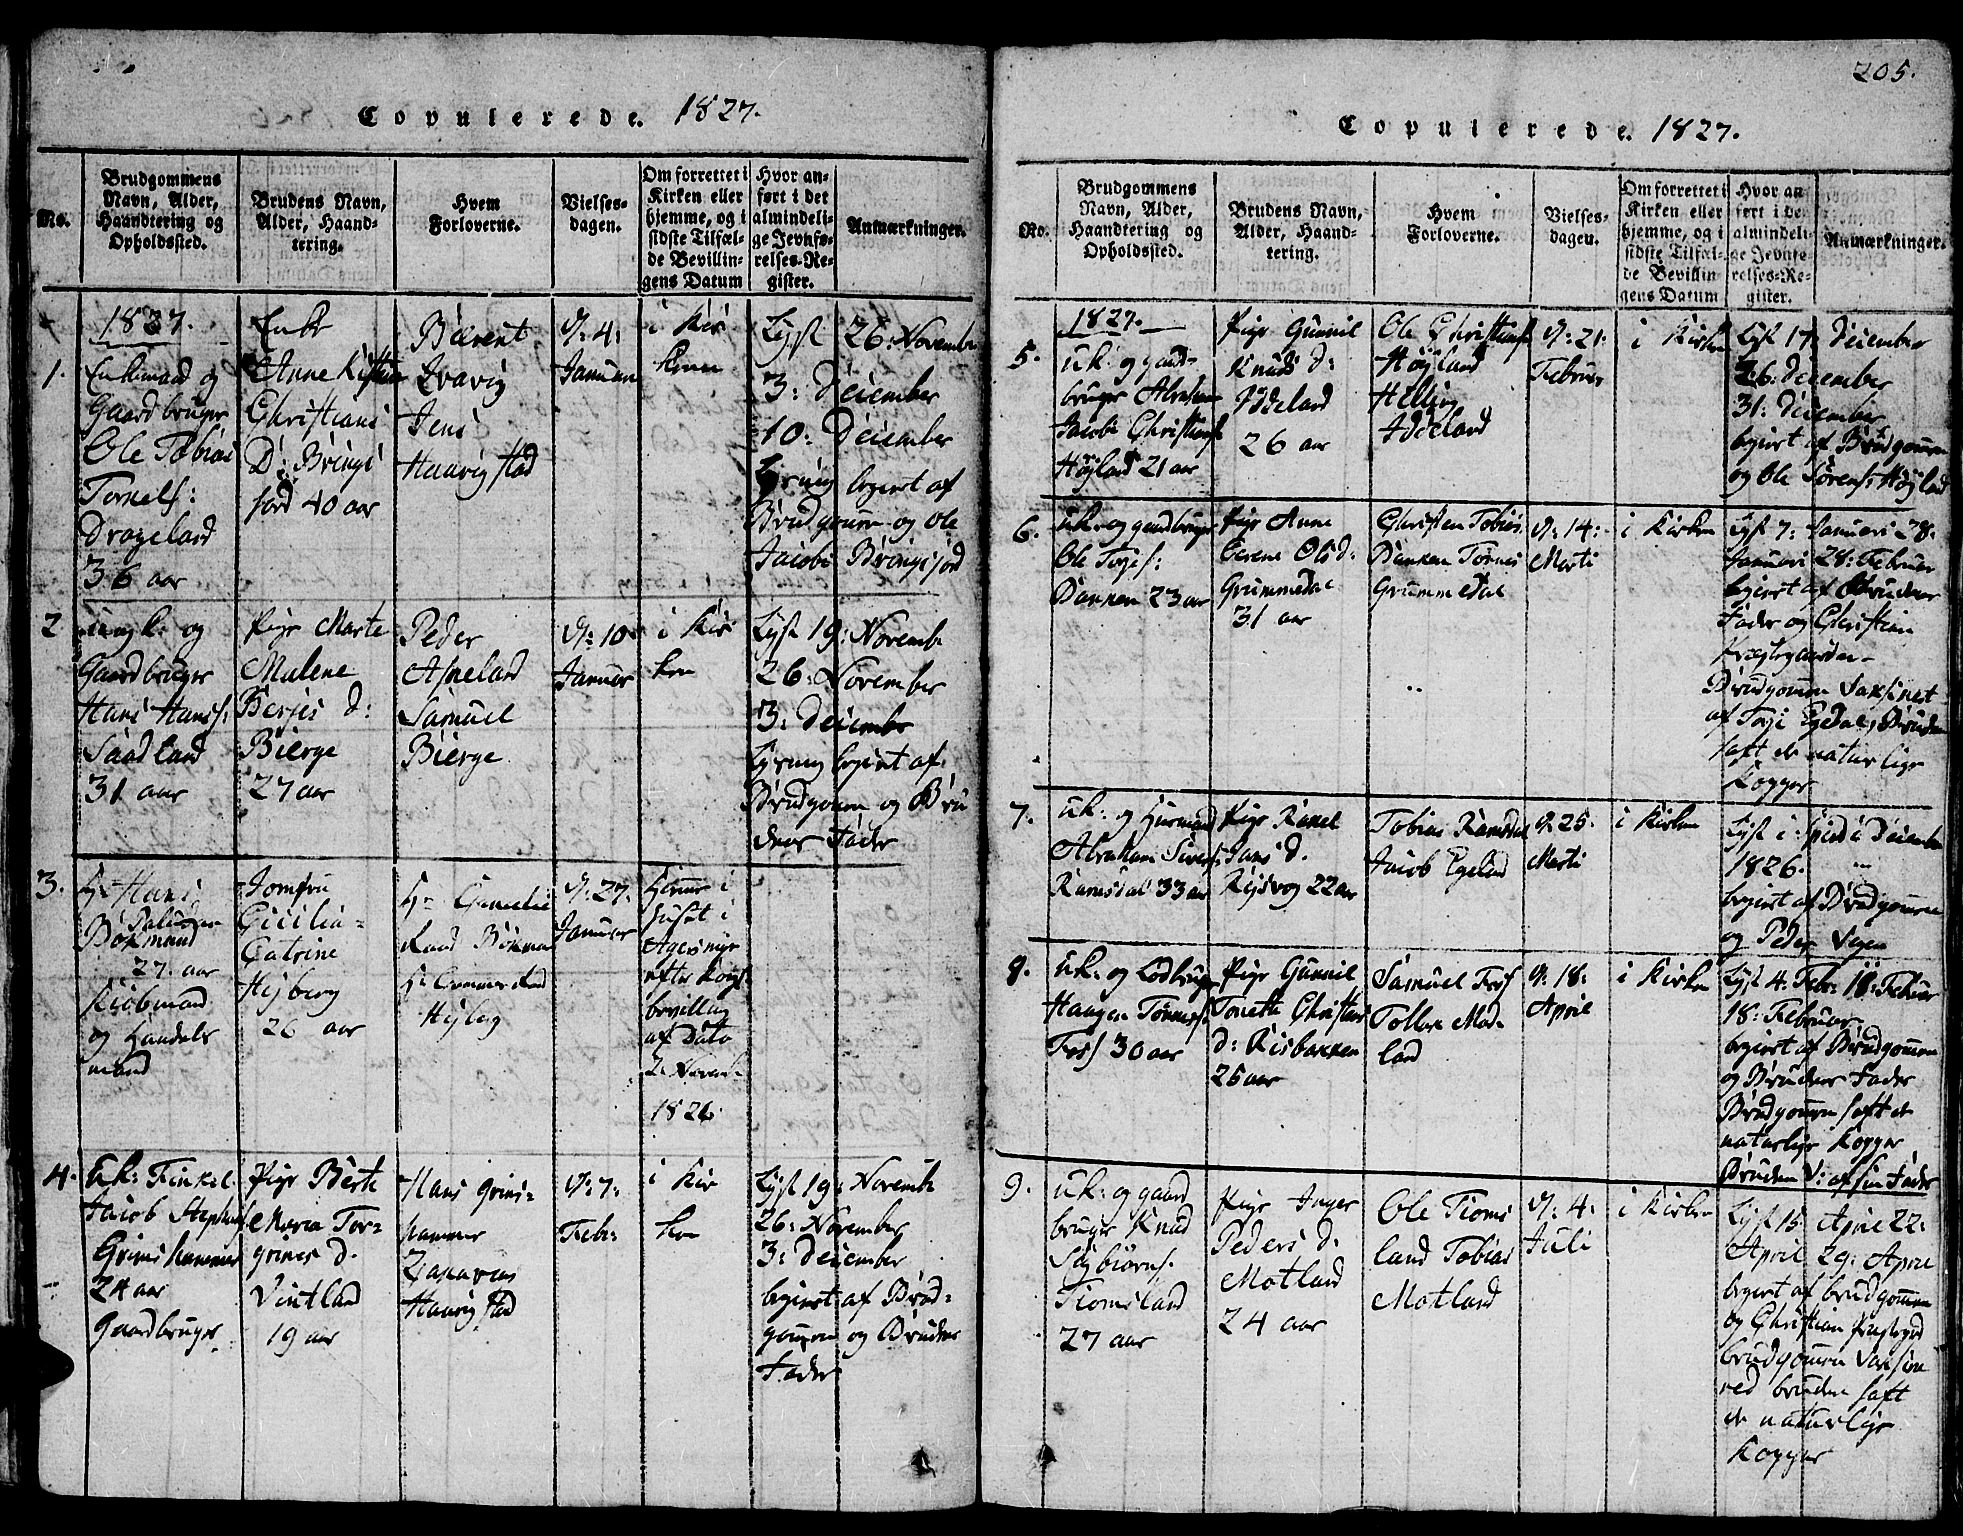 Copulerede. 1827.
No.
Brudgommens
Navn, Alder,
Haandtering og
Opholdssted.
Brudens Navn,
Alder, Haand-
tering.
Hvem
Forloverne.
Vielses-
dagen.
Om forrettet i
Kirken eller
hjemme, og i
sidste Tilfæl-
de Bevillin-
gens Datum
Hvor an-
ført i det
almindeli-
ge Jevnfø-
relses-Re-
gister.
Anmærkninger.
1827.
1.
Enkemand og
Gaardbruger
Ole Tobias
Tornels:
Drageland
36 aar
Enke
Anne
Christians
D: Brings
fjord 40 aar
Bærent
Jens
Haarigstad
d: 4:
Januari
i Kir
ken
Lyst 26: November
3: December
10: December
begiert af
Brudgomm og Ole
Jacobs Bringsjord
2
ungk: og
Gaardbruger
Hans Hanss:
Saadland
31 aar
Pige Marte
Malene
Berjes d:
Bierge
27 aar
Peder
Aspeland
Samuel
Bierge
d: 10
Januer
i Kir
ken
Lyst 19: Novemb
26: November
3: December
Lysning begiert af
Brudgomm og Bru
dens Fader
3.
Hr Hans
Bøkmand
27 aar
Kiøbmand
og Handels
mand
Jomfru
Cicilia
Catrine
Heyberg
26 aar
d: 27.
Januer
Hiemme i
Huset i
Agersmyr
efter Kongl
bevilling
af Dato
2 Novemb
1826
4.
Uk: Tinkel
Jacob Stephens
Grimshammer
24 aar
Gaardbruger
Pige Berte
Maria Tor-
grims d.
Vintland
19 aar
Hans Grims-
hammer
Zakarias
Haarigstad
d: 7:
Febr:
i Kir
ken
Lyst 19: Novemb
26: November
3: December
begiert af Brud-
gomm og Brudens
Fader
205.
Copulerede. 1827.
No.
Brudgommens
Navn, Alder,
Haandtering og
Opholdssted.
Brudens Navn,
Alder, Haand-
tering.
Hvem
Forloverne.
Vielses-
dagen.
Om forrettet i
Kirken eller
hjemme, og i
sidste Tilfæl-
de Bevillin-
gens Datum
Hvor an
ført i de
almindeli-
ge Jevnfø-
relses-Re-
gister.
Anmærkninger.
1827.
5.
uk: og gaard-
bruger Abraham
Jacobs Christians
Høyland 21 aar
Pige Gunnil
Knuds d:
Iddeland
26 aar
Ole Christians
Høyland
Helling
Iddeland
d: 21:
Februer
i Kirken
Lyst 17: December
26: December
31: December
begiert af Brudgomm
og Ole Sørens: Høyland
6.
uk: og gaardbruger
Ole Tojes:
Dannen 23 aar
Pige Anne
Serene Ols d:
Grummedal
31 aar
Christen Tobias
Dannen Tørnes
Grummedal
d: 14:
Marti
i Kirken
Lyst 7: Januari 28:
Januari 28: Februer
begiert af Brudens
Fader og Christian
Brudgomm Vaxsinet
af Torji Egedal, Bruden
haft de naturlige
Kopper
7.
uk: og Husmand
Abraham Sivers:
Ramsdal 33 aar
Pige Rakel
Jans d.
22 aar
Tobias Ramsdal
Jacob Egeland
d: 25.
Marti
i Kirken
Lyst i December
1826.
begiert af Brudgomm
og Peder Vegen
8.
uk: og Lodbruger
Haagen Tørness:
Foss 30 aar
Pige Gunnil
Tonette Christens
d: Risbakken
25 aar
Samuel Foss
Tollak Mod-
land
d: 18:
April
i Kirken
Lyst 4. Febr: 18: Febuar
18: Februar
begiert af Brudgomm
og Brudens Fader
Brudgomm haft de
naturlige Kopper
Bruden V: af sin Fader
9.
uk: og gaard
bruger Knud
Siybiørns:
Tiomsland
27 aar
Pige Inger
Peders d.
Motland
24 aar
Ole Tioms
land Tobias
Motland
d: 4:
Juli
i Kirken
Lyst 15: April 22:
April 29: April
begiert af brudgommen
og Christian
brudgomm Vaxsine
red bruden haft
de naturlige
Kopper